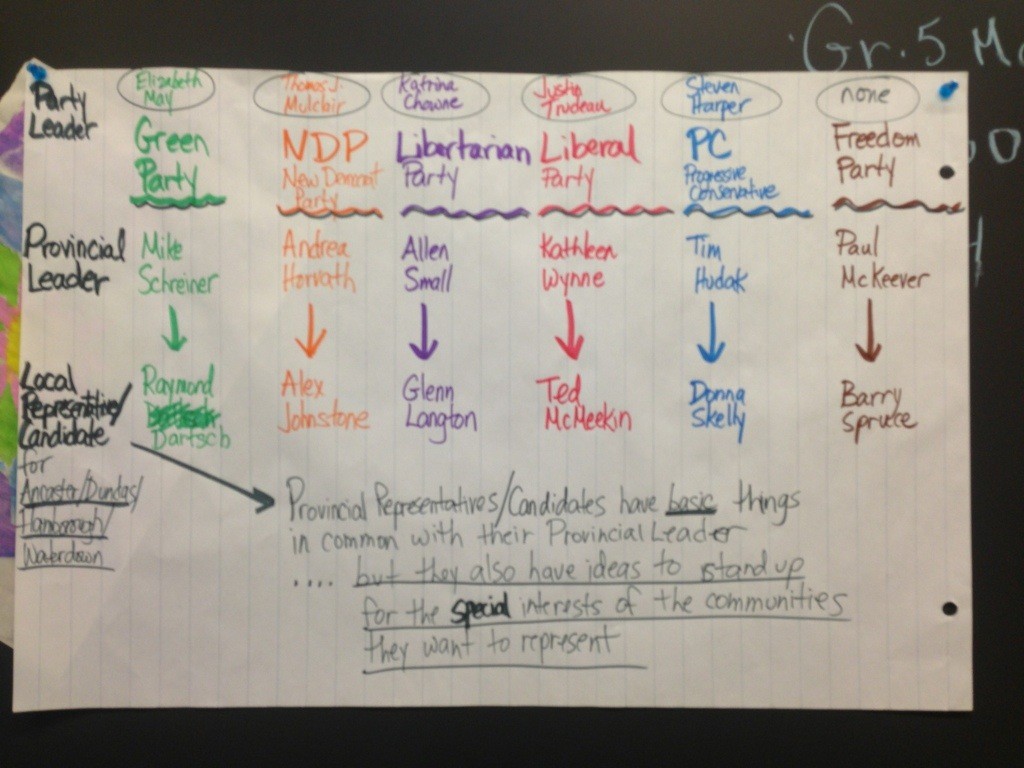 Gr. 5
Party Leader
Elizabeth May
Thomas J. Mulclair
Katrina Chowne
Justin Trudeau
Steven Harper
none
Green Party
NDP
New Democrat Party
Libertarian Party
Liberal Party
PC
Progressive Conservative
Freedom Party
Provincial Leader
Mike Schreiner
Andrea Horvath
Allen Small
Kathleen Wynne
Tim Hudak
Paul McKeever
Local
Representative/
Candidate
for
Ancaster/Dundas/
Flamborough/
Waterdown
Raymond
Dartsch
Alex Johnstone
Glenn Langton
Ted McMeekin
Donna Skelly
Barry Spruce
Provincial Representatives/Candidates have basic things
in common with their Provincial Leader
.... but they also have ideas to stand up
for the special interests of the communities
they want to represent